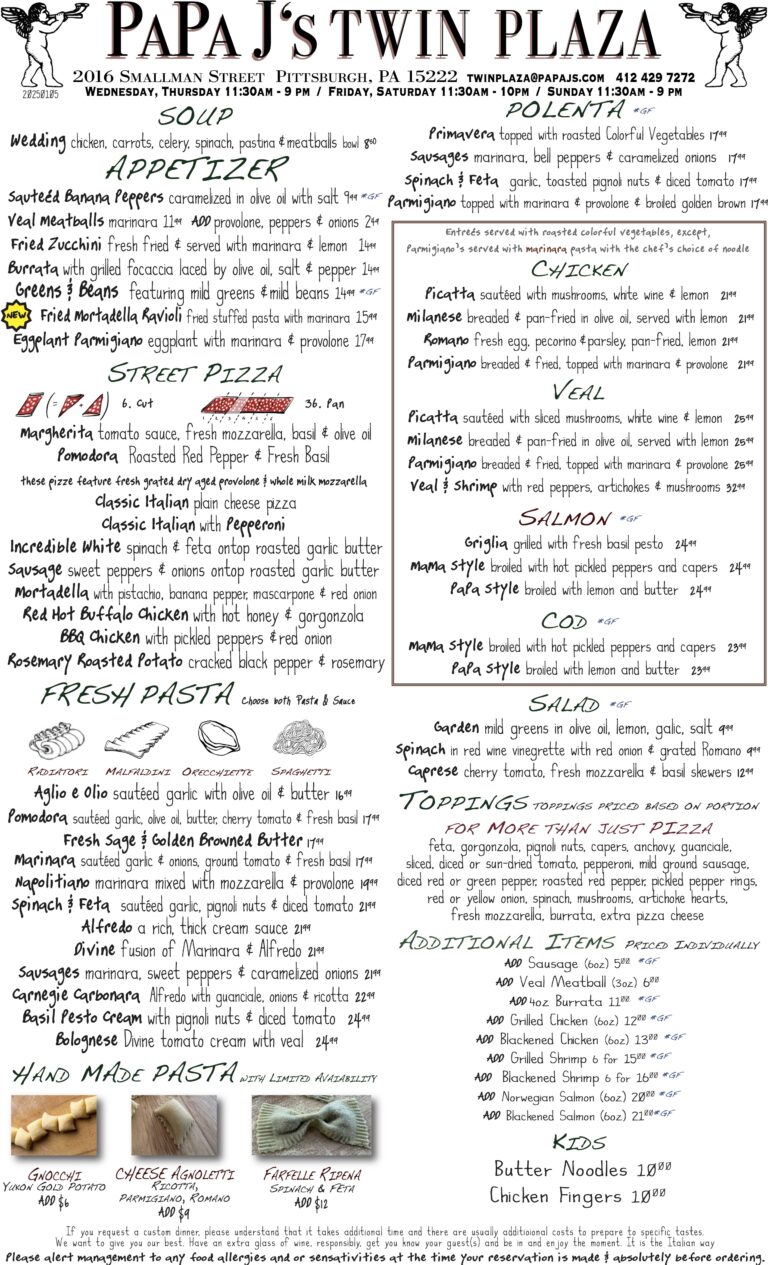 PAPA J'S TWIN PLAZA
2016 SMALLMAN STREET PITTSBURGH, PA 15222 TWINPLAZA@PAPAJS.COM 412 429 7272
WEDNESDAY, THURSDAY 11:30AM - 9 PM / FRIDAY, SATURDAY 11:30AM - 10PM / SUNDAY 11:30AM - 9 PM
20250105
SOUP
Wedding chicken, carrots, celery, spinach, pastina & meatballs bowl 8⁵⁰
APPETIZER
Sauteéd Banana Peppers caramelized in olive oil with salt 9⁹⁹ *GF
Veal Meatballs marinara 11⁹⁹ ADD provolone, peppers & onions 2⁹⁹
Fried Zucchini fresh fried & served with marinara & lemon 14⁹⁹
Burrata with grilled focaccia laced by olive oil, salt & pepper 14⁹⁹
Greens & Beans featuring mild greens & mild beans 14⁹⁹ *GF
NEW Fried Mortadella Ravioli fried stuffed pasta with marinara 15⁹⁹
Eggplant Parmigiano eggplant with marinara & provolone 17⁹⁹
STREET PIZZA
(= + ) 6. Cut 36. Pan
Margherita tomato sauce, fresh mozzarella, basil & olive oil
Pomodora Roasted Red Pepper & Fresh Basil
these pizze feature fresh grated dry aged provolone & whole milk mozzarella
Classic Italian plain cheese pizza
Classic Italian with Pepperoni
Incredible White spinach & feta ontop roasted garlic butter
Sausage sweet peppers & onions ontop roasted garlic butter
Mortadella with pistachio, banana pepper, mascarpone & red onion
Red Hot Buffalo Chicken with hot honey & gorgonzola
BBQ Chicken with pickled peppers & red onion
Rosemary Roasted Potato cracked black pepper & rosemary
FRESH PASTA Choose both Pasta & Sauce
RADIATORI MALFALDINI ORECCHIETTE SPAGHETTI
Aglio e Olio sautéed garlic with olive oil & butter 16⁹⁹
Pomodora sautéed garlic, olive oil, butter, cherry tomato & fresh basil 17⁹⁹
Fresh Sage & Golden Browned Butter 17⁹⁹
Marinara sautéed garlic & onions, ground tomato & fresh basil 17⁹⁹
Napolitiano marinara mixed with mozzarella & provolone 19⁹⁹
Spinach & Feta sautéed garlic, pignoli nuts & diced tomato 21⁹⁹
Alfredo a rich, thick cream sauce 21⁹⁹
Divine fusion of Marinara & Alfredo 21⁹⁹
Sausages marinara, sweet peppers & caramelized onions 21⁹⁹
Carnegie Carbonara Alfredo with guanciale, onions & ricotta 22⁹⁹
Basil Pesto Cream with pignoli nuts & diced tomato 24⁹⁹
Bolognese Divine tomato cream with veal 24⁹⁹
HAND MADE PASTA WITH LIMITED AVAIABILITY
GNOCCHI
YUKON GOLD POTATO
ADD $6
CHEESE AGNOLETTI
RICOTTA,
PARMIGIANO, ROMANO
ADD $9
FARFELLE RIPENA
SPINACH & FETA
ADD $12
POLENTA *GF
Primavera topped with roasted Colorful Vegetables 17⁹⁹
Sausages marinara, bell peppers & caramelized onions 17⁹⁹
Spinach & Feta garlic, toasted pignoli nuts & diced tomato 17⁹⁹
Parmigiano topped with marinara & provolone & broiled golden brown 17⁹⁹
Entreés served with roasted colorful vegetables, except,
Parmigiano's served with marinara pasta with the chef's choice of noodle
CHICKEN
Picatta sautéed with mushrooms, white wine & lemon 21⁹⁹
Milanese breaded & pan-fried in olive oil, served with lemon 21⁹⁹
Romano fresh egg, pecorino & parsley, pan-fried, lemon 21⁹⁹
Parmigiano breaded & fried, topped with marinara & provolone 21⁹⁹
VEAL
Picatta sautéed with sliced mushrooms, white wine & lemon 25⁹⁹
Milanese breaded & pan-fried in olive oil, served with lemon 25⁹⁹
Parmigiano breaded & fried, topped with marinara & provolone 25⁹⁹
Veal & Shrimp with red peppers, artichokes & mushrooms 32⁹⁹
SALMON *GF
Griglia grilled with fresh basil pesto 24⁹⁹
Mama Style broiled with hot pickled peppers and capers 24⁹⁹
PaPa Style broiled with lemon and butter 24⁹⁹
COD *GF
Mama Style broiled with hot pickled peppers and capers 23⁹⁹
PaPa Style broiled with lemon and butter 23⁹⁹
SALAD *GF
Garden mild greens in olive oil, lemon, galic, salt 9⁹⁹
Spinach in red wine vinegrette with red onion & grated Romano 9⁹⁹
Caprese cherry tomato, fresh mozzarella & basil skewers 12⁹⁹
TOPPINGS TOPPINGS PRICED BASED ON PORTION
FOR MORE THAN JUST PIZZA
feta, gorgonzola, pignoli nuts, capers, anchovy, guanciale,
sliced, diced or sun-dried tomato, pepperoni, mild ground sausage,
diced red or green pepper, roasted red pepper, pickled pepper rings,
red or yellow onion, spinach, mushrooms, artichoke hearts,
fresh mozzarella, burrata, extra pizza cheese
ADDITIONAL ITEMS PRICED INDIVIDUALLY
ADD Sausage (6oz) 5⁰⁰ *GF
ADD Veal Meatball (3oz) 6⁰⁰
ADD 4oz Burrata 11⁰⁰ *GF
ADD Grilled Chicken (6oz) 12⁰⁰ *GF
ADD Blackened Chicken (6oz) 13⁰⁰ *GF
ADD Grilled Shrimp 6 for 15⁰⁰ *GF
ADD Blackened Shrimp 6 for 16⁰⁰ *GF
ADD Norwegian Salmon (6oz) 20⁰⁰ *GF
ADD Blackened Salmon (6oz) 21⁰⁰ *GF
KIDS
Butter Noodles 10⁰⁰
Chicken Fingers 10⁰⁰
If you request a custom dinner, please understand that it takes additional time and there are usually additioional costs to prepare to specific tastes.
We want to give you our best. Have an extra glass of wine, responsibly, get you know your guest(s) and be in and enjoy the moment. It is the Italian way
Please alert management to any food allergies and or sensativities at the time your reservation is made & absolutely before ordering.